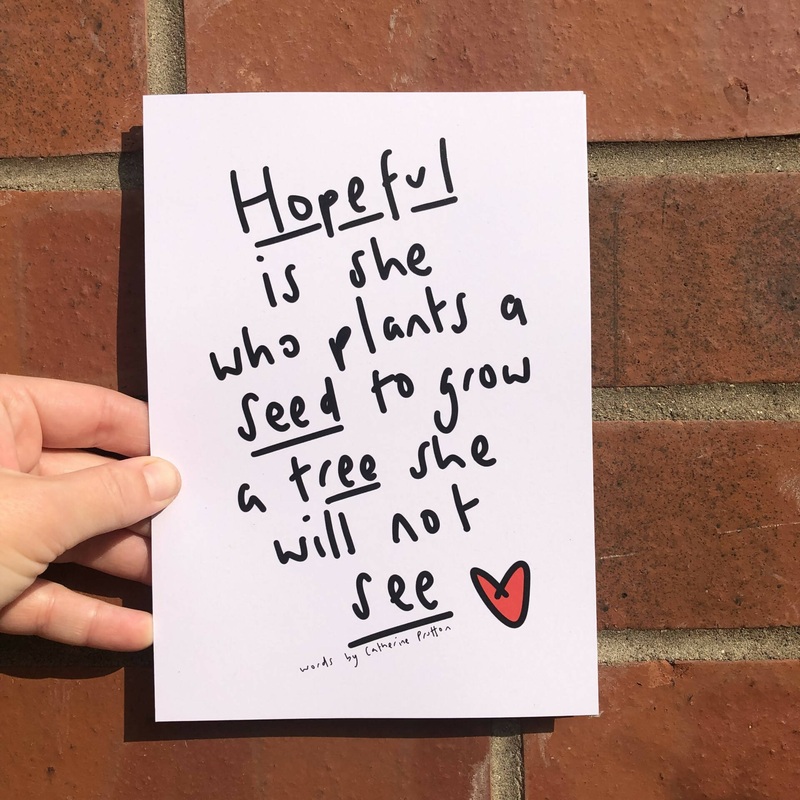 Hopeful
is she
who plants a
seed to grow
a tree she
will not
see
words by Catherine Prutton